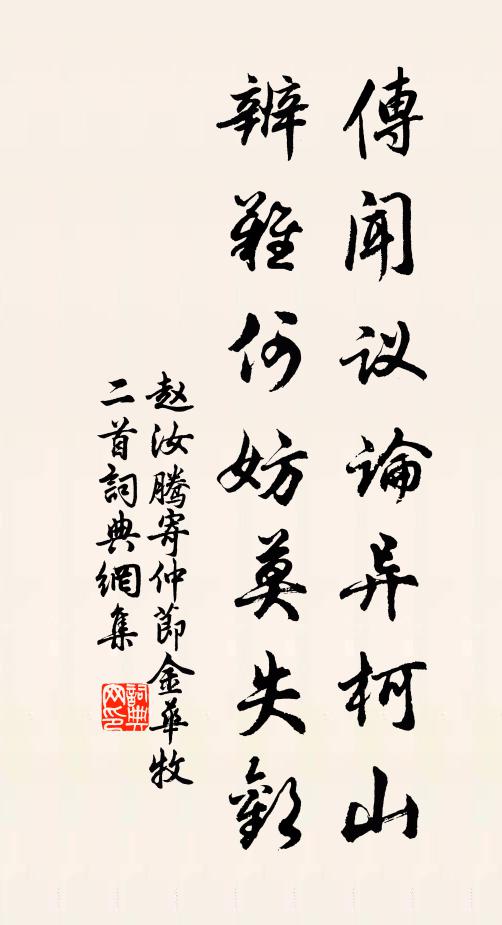 傳闻议論异柯山
辨难何妨莫失歡
赵汝腾寄仲節金華牧
二首詞典網集
詞典网印